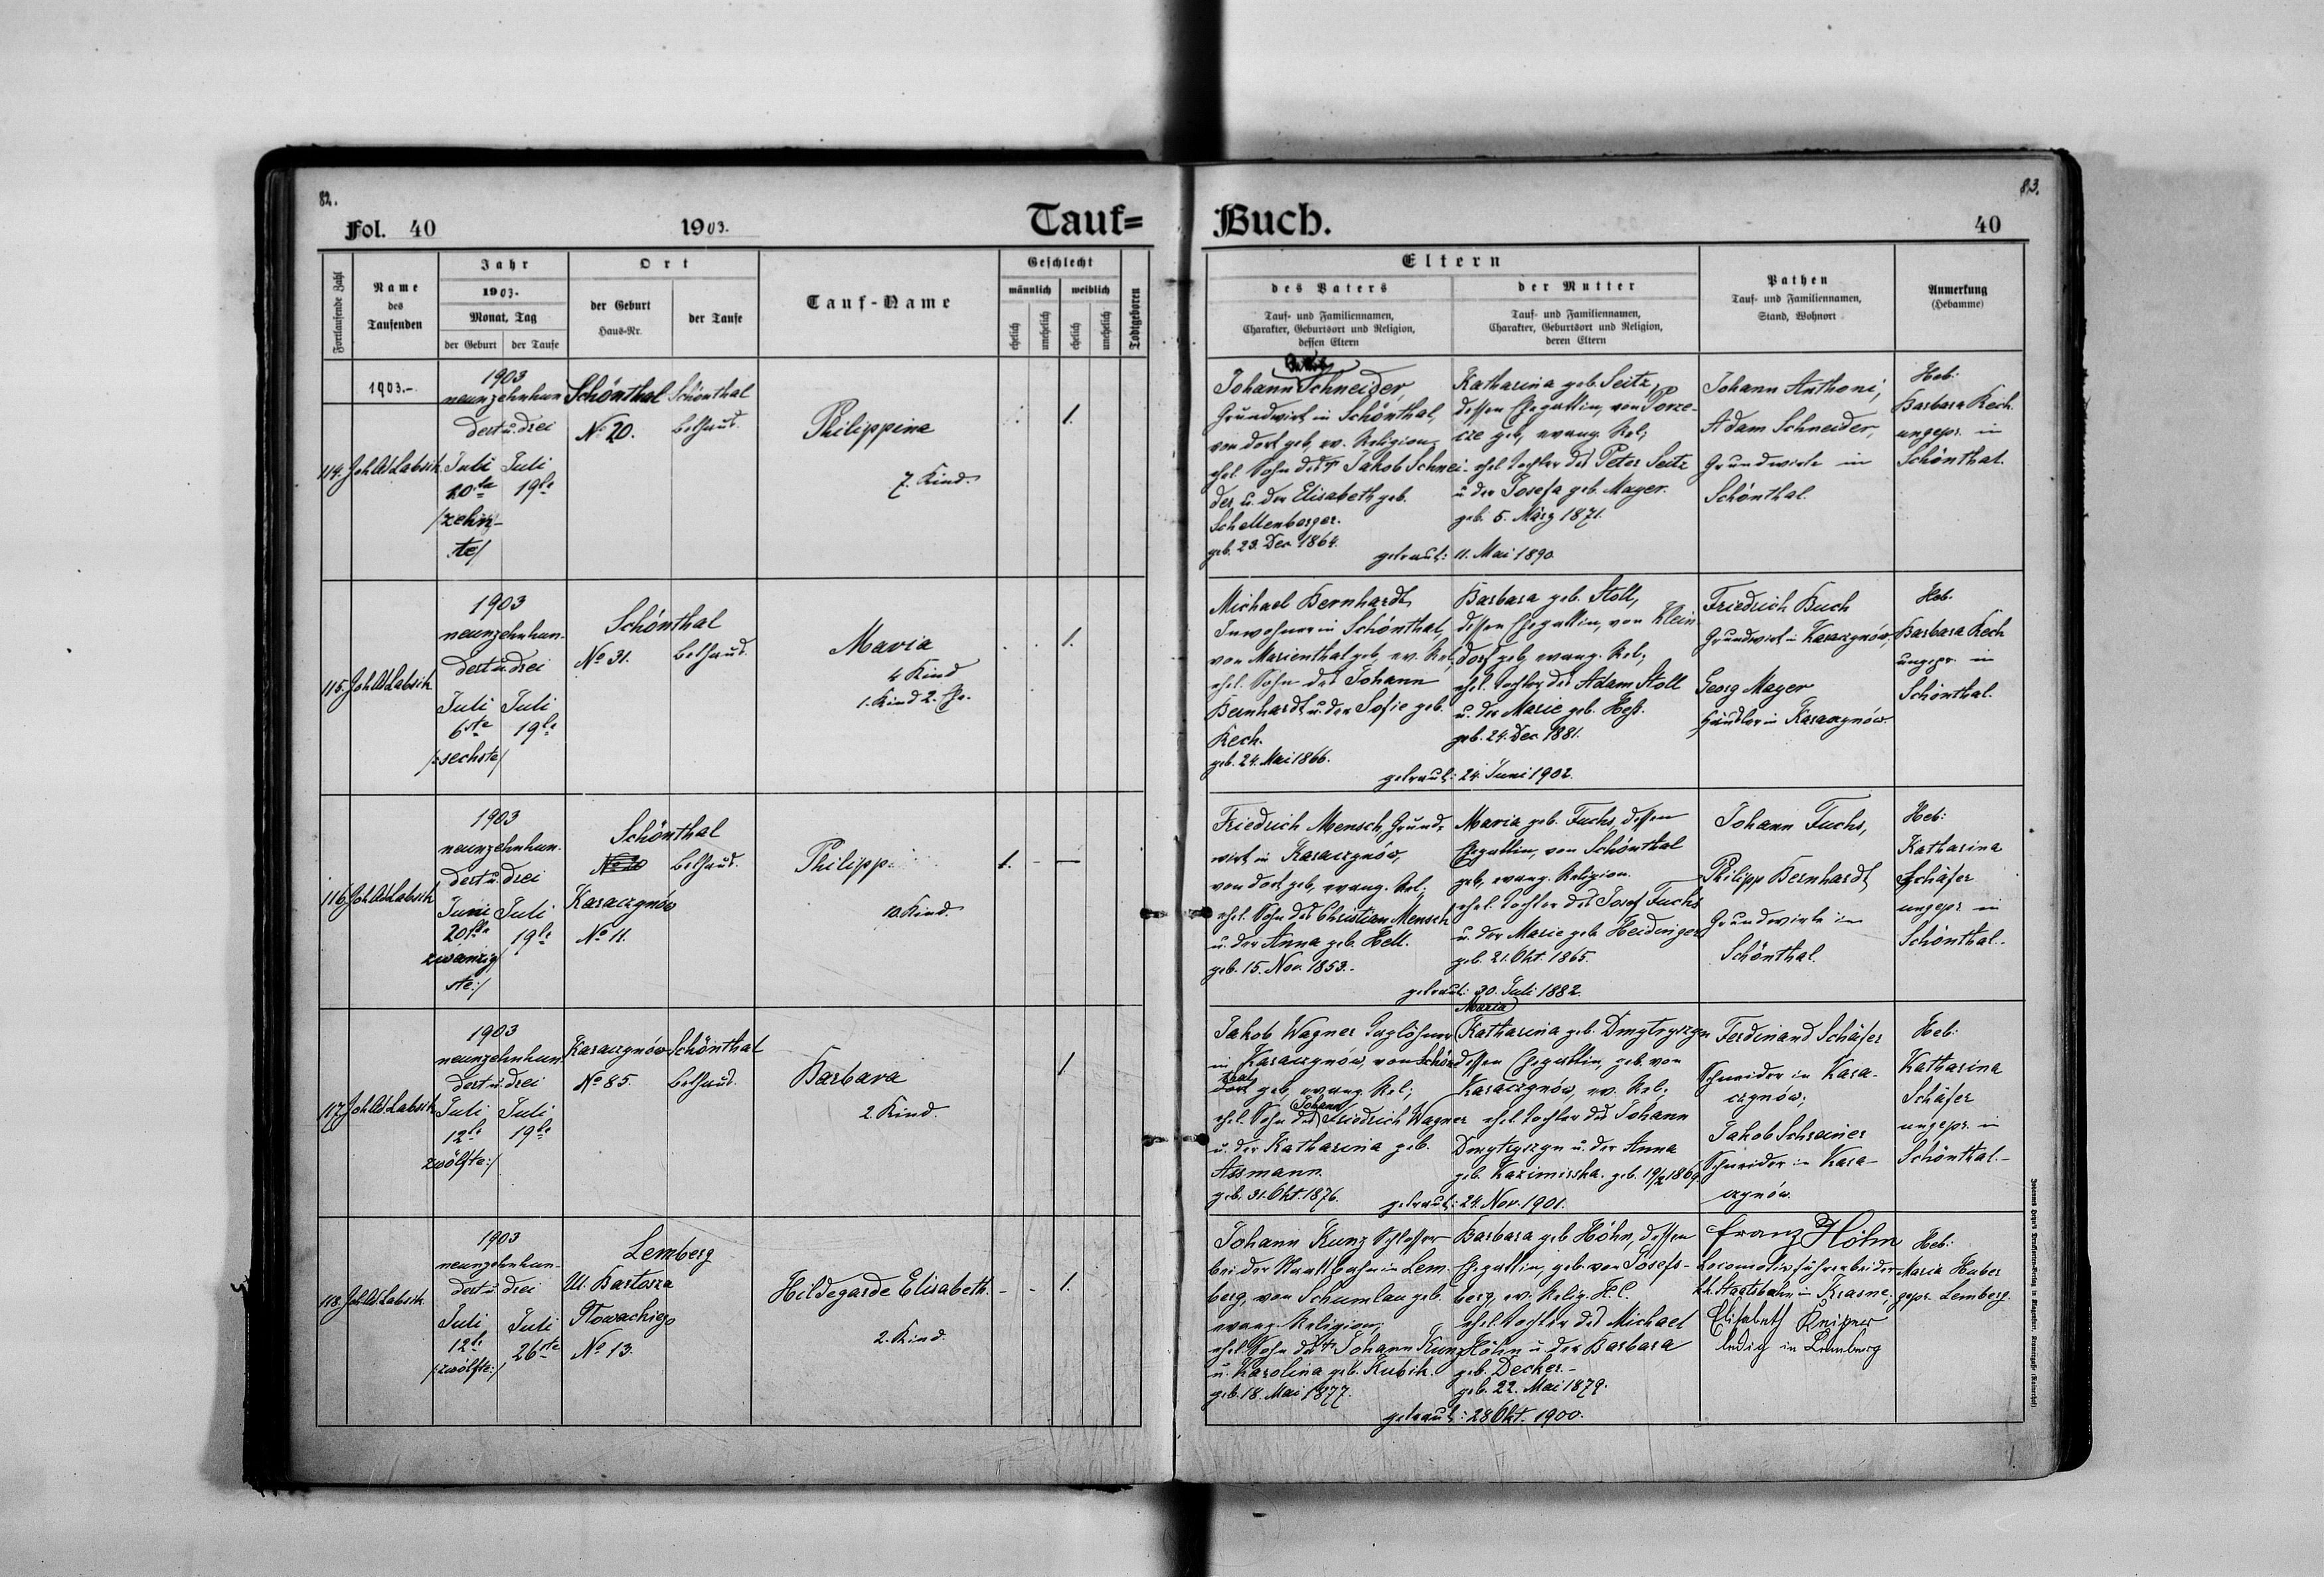 82.
Fol. 40
1903.
Tauf=
Fortlaufende Zahl
Name
des
Taufenden
Jahr
1903.
Monat, Tag
der Geburt
der Taufe
Ort
der Geburt
Haus-Nr.
der Taufe
Tauf-Name
Geschlecht
männlich
weiblich
ehelich
unehelich
ehelich
unehelich
Todtgeboren
1903.-
114.
1903
neunzehnhun
dert u. drei
Juli Juli
10te 19te
/zehn-
te/
Schönthal Schönthal
No 20. Bethaus.
Philippina
7. Kind.
1.
115.
1903
neunzehnhun-
dert u. drei
Juli Juli
6te 19te
/:sechste/
Schönthal
No 31. Bethaus.
Maria
4 Kind
1. Kind 2. Ehe.
1.
116.
1903
neunzehnhun-
dert u. drei
Juni Juli
20ste 19te
zwanzig
ste:/
Schönthal
Bethaus.
Karaczynów
No 11.
Philipp
10. Kind.
1.
117.
1903
neunzehnhun
dert u. drei
Juli Juli
12te 19te
zwölfte:/
Karaczynów Schönthal
No 85. Bethaus.
Barbara
2. Kind.
1
118.
1903
neunzehnhun-
dert u. drei
Juli Juli
12te 26ste
/:zwölfte:/
Lemberg
Ul. Bartosza
Głowackiego
No 13.
Hildegarde Elisabeth.
2. Kind.
1.
83.
Buch.
40
Eltern
des Vaters
Tauf- und Familiennamen,
Charakter, Geburtsort und Religion,
dessen Eltern
der Mutter
Tauf- und Familiennamen,
Charakter, Geburtsort und Religion,
deren Eltern
Pathen
Tauf- und Familiennamen,
Stand, Wohnort
Anmerkung
(Hebamme)
Johann Schneider,
Grundwirt in Schönthal,
von dort geb, ev. Religion,
ehel. Sohn des + Jakob Schnei-
der u. der Elisabeth geb.
Schellenberger.
geb. 23. Dez 1864.
Katharina geb. Seitz,
dessen Ehegattin, von Porze-
cze geb, evang. Rel;
ehel. Tochter des Peter Seitz
u. der Josefa geb. Mayer.
geb. 5. März 1871.
getraut: 11. Mai 1890
Johann Anthoni,
Adam Schneider,
Grundwirte in
Schönthal.
Heb:
Barbara Kech
ungepr. in
Schönthal.
Michael Bernhardt,
Inwohner in Schönthal,
von Marienthal geb, ev. Rel,
ehel. Sohn des Johann
Bernhardt u. der Sofie geb.
Kech.
geb. 24. Mai 1866.
Barbara geb. Stoll,
dessen Ehegattin, von Klein
dorf geb, evang. Rel;
ehel. Tochter des Adam Stoll
u. der Marie geb. Heß.
geb. 24. Dez 1881.
getraut: 24. Juni 1902.
Friedrich Buch
Grundwirt in Karaczynów,
Georg Mayer
Händler in Karaczynów
Heb.
Barbara Kech
ungepr. in
Schönthal.
Friedrich Mensch, Grund-
wirt in Karaczynów,
von dort geb, evang. Rel;
ehel. Sohn des Christian Mensch
u. der Anna geb. Hell.
geb. 15. Nov. 1853.
Maria geb. Fuchs, dessen
Ehegattin, von Schönthal
geb, evang. Religion.
ehel. Tochter des Josef Fuchs
u. der Marie geb Heidinger
geb. 21. Okt. 1865.
getraut: 30. Juli 1882.
Johann Fuchs,
Philipp Bernhardt
Grundwirte in
Schönthal.
Heb:
Katharina
Schäfer
ungepr. in
Schönthal.
Maria
Jakob Wagner Taglöhner
in Karaczynów, von Schön
thal
geb, evang. Rel;
Johann
ehel. Sohn des Friedrich Wagner
u. der Katharina geb.
Assmann.
geb. 31. Okt. 1876.
Katharina geb. Dmytryszyn
dessen Ehegattin, geb. von
Karaczynów, ev. Rel;
ehel. Tochter des Johann
Dmytryszyn u. der Anna
geb. Kazimirska. geb. 19/2 1869
getraut: 24. Nov. 1901.
Ferdinand Schäfer
Schneider in Kara-
czynów;
Jakob Schreiner
Schneider in Kara-
czynów.
Heb:
Katharina
Schäfer
ungepr. in
Schönthal.
Johann Kunz Schlosser
bei der Staatsbahn in Lem-
berg, von Schumlau geb.
evang. Religion;
ehel. Sohn des + Johann Kunz
u. Karolina geb. Kubik.
geb. 18. Mai 1877.
Barbara geb Höhn, dessen
Ehegattin, geb. von Josefs-
berg, ev. Relig. H.C.
ehel. Tochter des Michael
Höhn u. der Barbara
geb. Decker.-
geb. 22. Mai 1879.
getraut: 28 Okt. 1900.
Franz Höhn
Locomotivführer bei der
k.k. Staatsbahn in Krasne;
Elisabeth Kneiper
ledig in Lemberg
Heb:
Maria Huber
gepr. Lemberg.